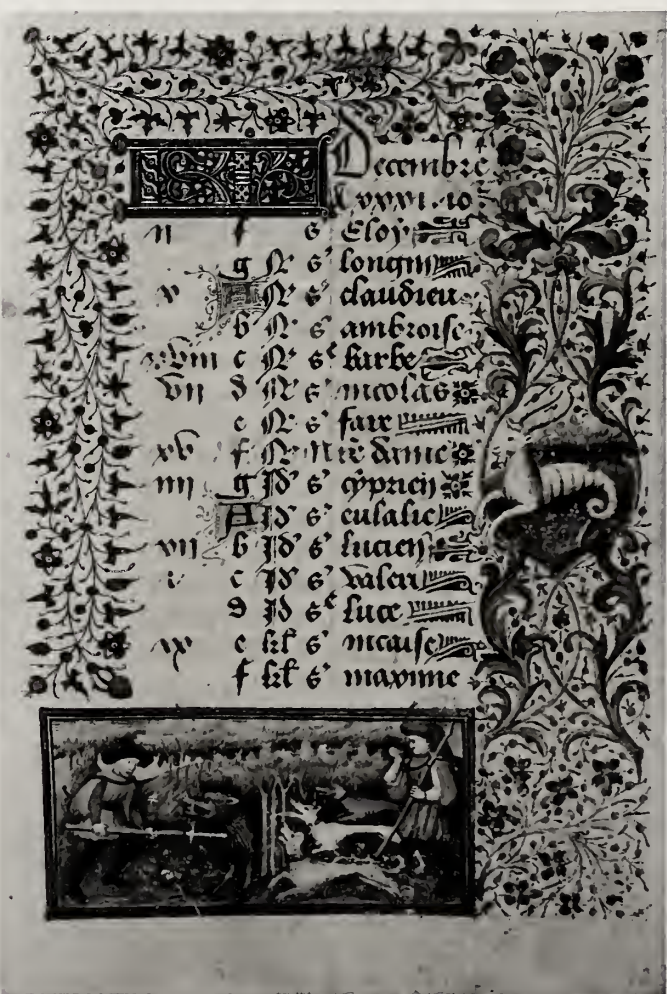 Decembre
a xxxi io
f s' Eloy
g N s' longin
A N s' claudien
b N s' ambroise
xviii c N s^e barbe
vii d N s' nicolas
e N s' fare
xv f N nr̃e dame
iiii g Id' s' cyprien
A Id' s' eulalie
vii b Id' s' lucien
c Id' s' valeri
d Id s^e luce
e kl s' nicaise
f kl s' maxime